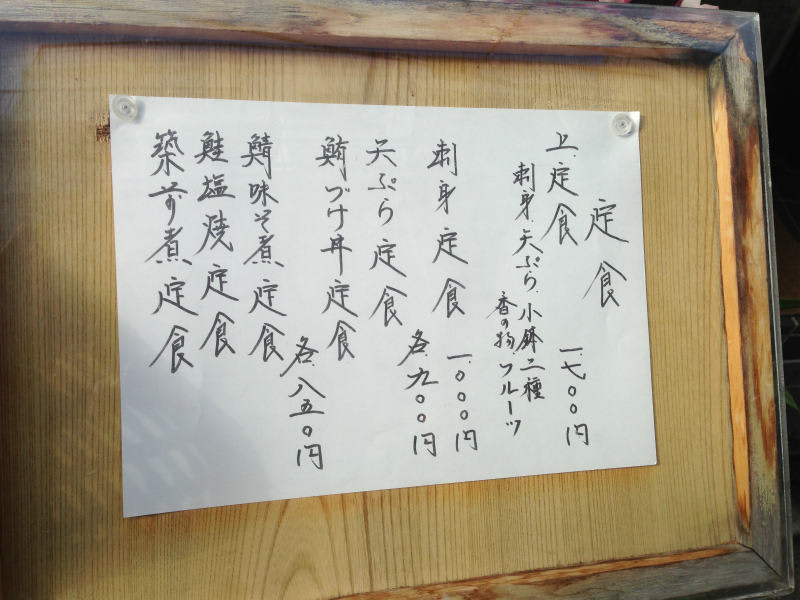 定食
上定食 一、七〇〇円
刺身、天ぷら、小鉢二種
香の物、フルーツ
刺身定食 一、〇〇〇円
天ぷら定食 各、九〇〇円
鮪づけ丼定食
鯖味そ煮定食 各、八五〇円
鮭塩焼定食
築前煮定食